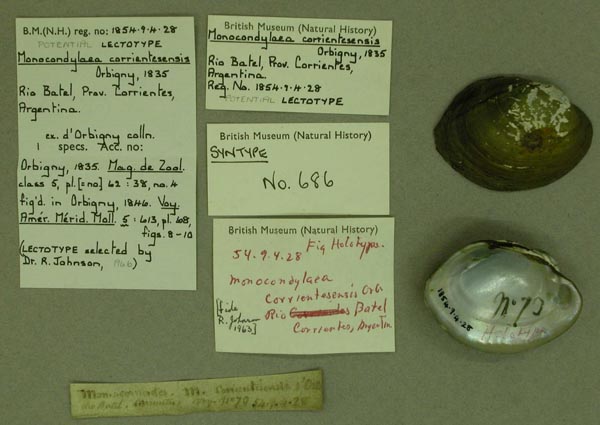 B.M.(N.H.) reg. no: 1854.9.4.28
POTENTIAL LECTOTYPE
Monocondylaea corrientesensis
Orbigny, 1835
Rio Batel, Prov. Corrientes,
Argentina.
ex. d'Orbigny colln.
1 specs. Acc. no:
Orbigny, 1835. Mag. de Zool.
class 5, pl.[=no] 62 : 38, no. 4
fig'd. in Orbigny, 1846. Voy.
Amér. Mérid. Moll. 5 : 613, pl. 68,
figs. 8-10
(LECTOTYPE selected by
Dr. R. Johnson, )
British Museum (Natural History)
Monocondylaea corrientesensis
Orbigny, 1835
Rio Batel, Prov. Corrientes,
Argentina.
Reg. No. 1854.9.4.28
POTENTIAL LECTOTYPE
British Museum (Natural History)
SYNTYPE
No. 686
British Museum (Natural History)
54.9.4.28 Fig Holotype.
monocondylaea
Corrientesensis Orb
Rio Batel
Corrientes, Argentin
[fide
R. Johnson
1963]
1854.9.4.28
No 70
Holotype
M.
No 70 54.9.4.28